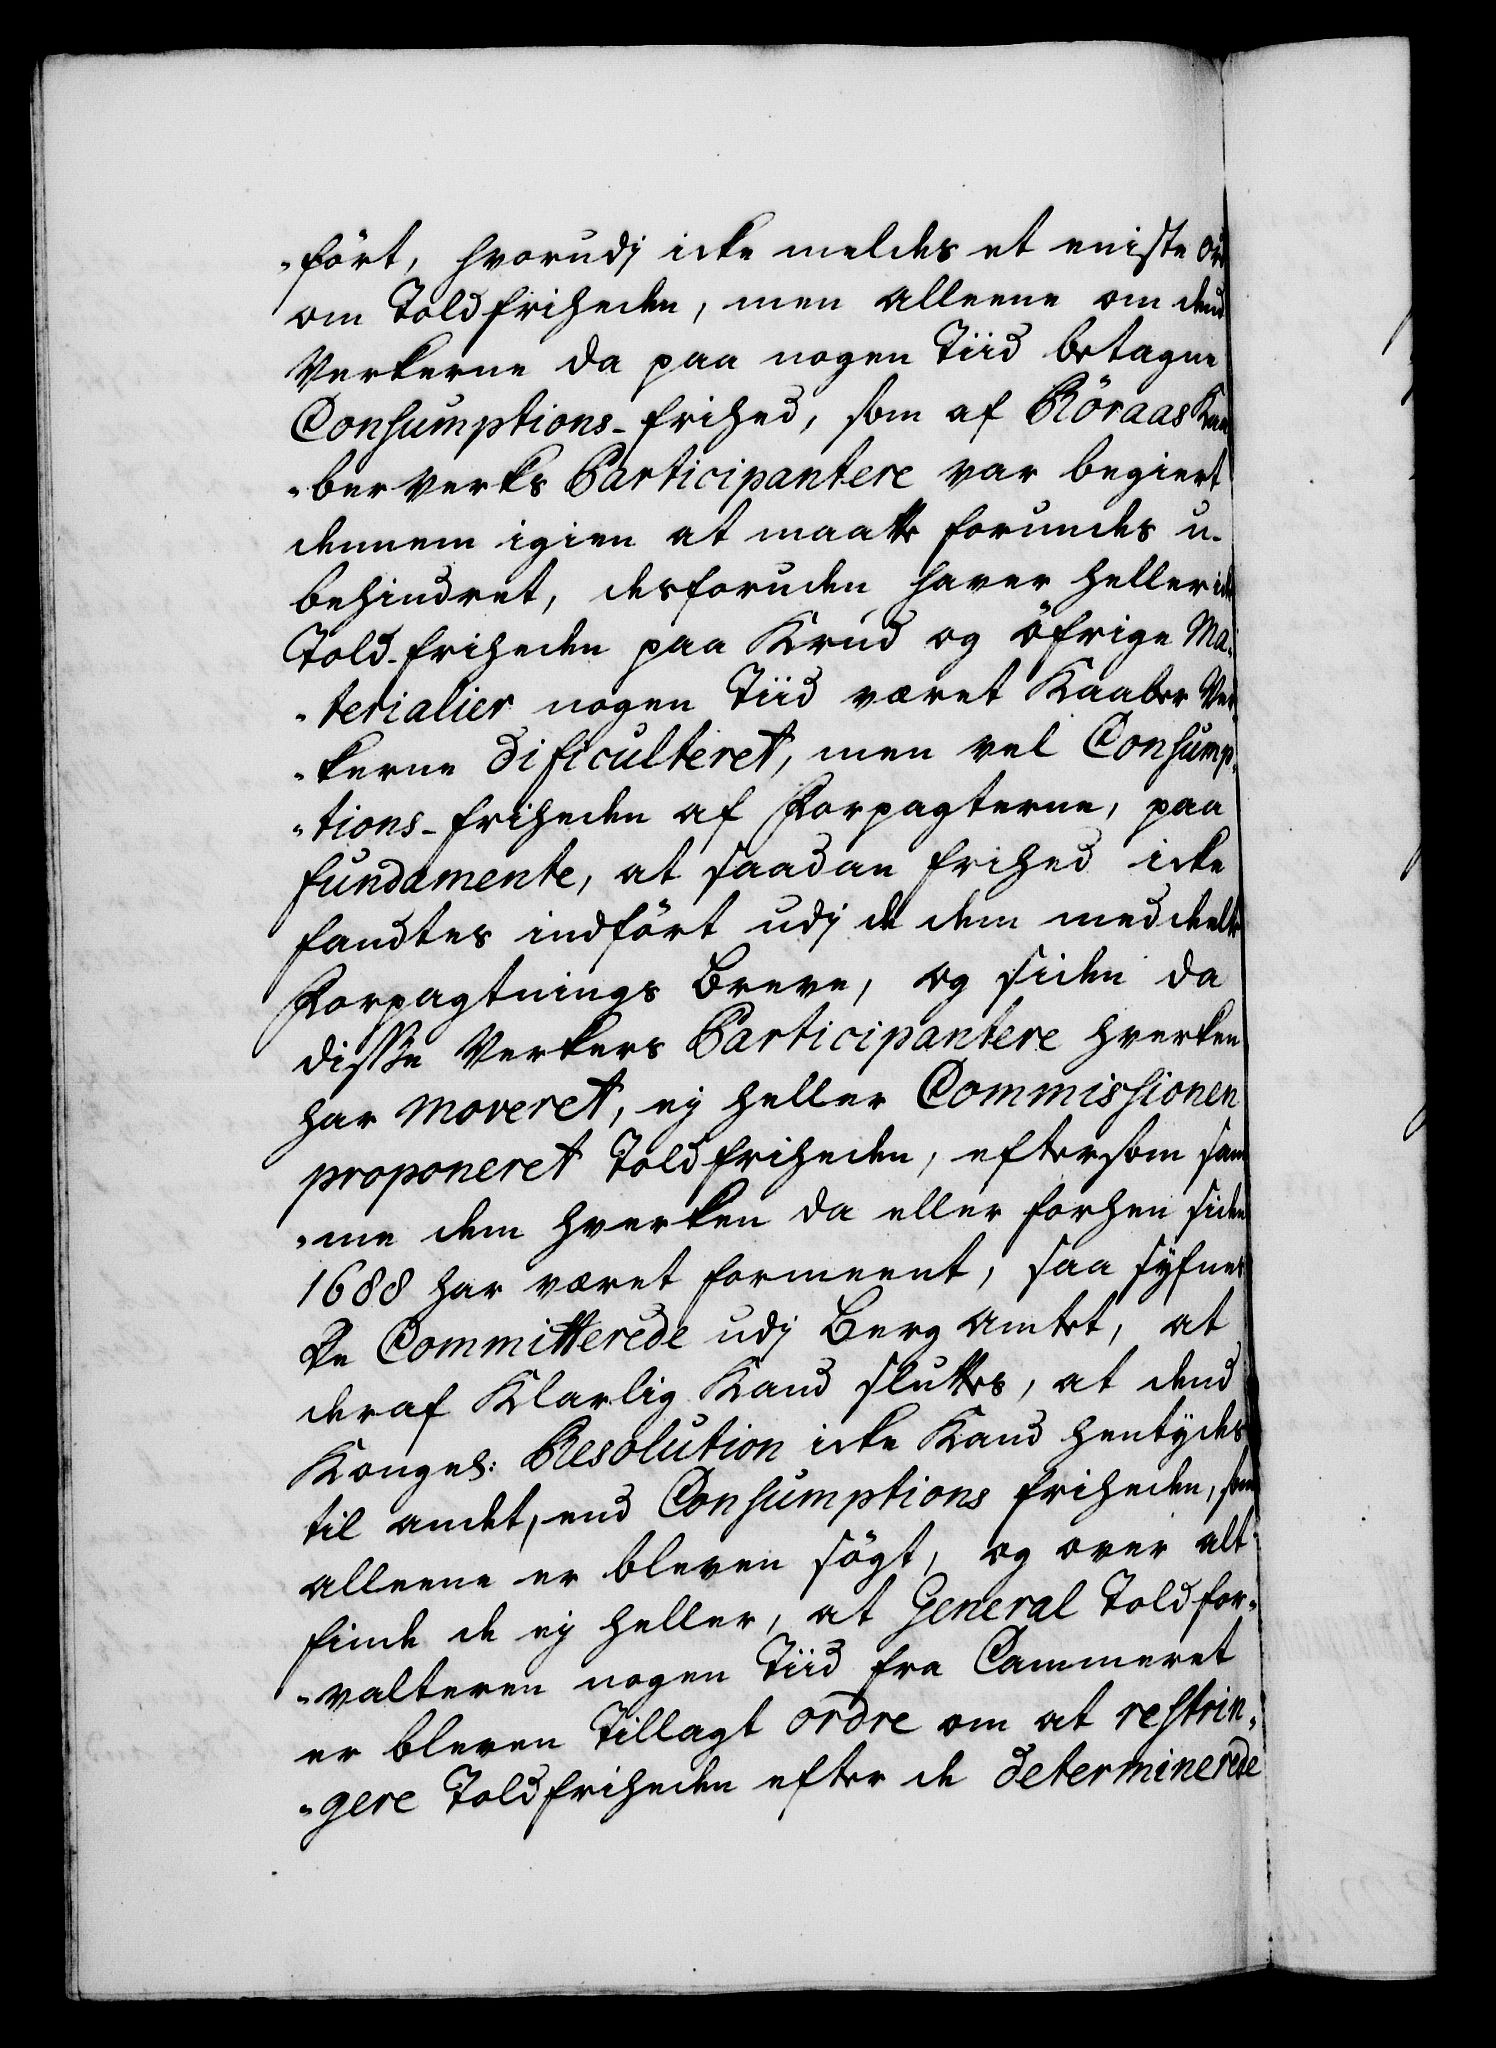 "fört, hvorudj icke meldes et eniste Ord
om Toldfriheden, men alleene om dend
Verkerne da paa nogen Tiid betagne
Consumptions-frihed, som af Röraas Kaa
"berverks Participantere var begiert
dennem igien at maatte forundes u-
behindret, desforuden haver heller icke
Told-friheden paa Krud og öfrige Ma-
"terialier nogen Tiid været Kaaber Ver-
"kerne dificulteret, men vel Consump-
"tions-friheden af Forpagterne, paa
fundamente, at saadan frihed icke
fandtes indfört udj de dem meddeelte
Forpagtnings Breve, og siden da
disse Verkers Participantere hverken
har moveret, ej heller Commissionen
proponeret Toldfriheden, eftersom sam
"me dem hverken da eller forhen siden
1688 har været formeent, saa syfnes
De Committerede udj Berg Amtet, at
deraf Klarlig Kand sluttes, at dend
Kongel: Resolution icke Kand hentydes
til andet, end Consumptions friheden, som
alleene er bleven sögt, og over alt
finde de ej heller, at General Toldfor-
"valteren nogen Tiid fra Cammeret
er bleven Tillagt ordre om at restrin-
"gere Toldfriheden efter de determinerede